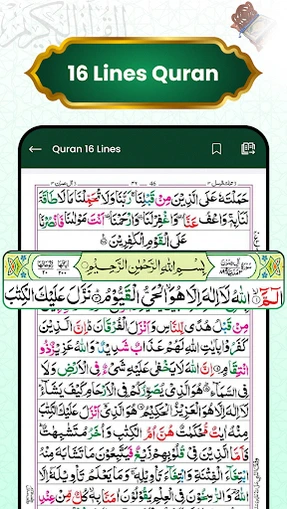 16 Lines Quran
Quran 16 Lines
حَمَلْتَهٗ عَلَى الَّذِيْنَ مِنْ قَبْلِنَا ۚ رَبَّنَا وَلَا تُحَمِّلْنَا مَا لَا طَاقَةَ
لَنَا بِهٖ ۚ وَاعْفُ عَنَّا ۥ وَاغْفِرْ لَنَا ۥ وَارْحَمْنَا ۥ اَنْتَ مَوْلٰىنَا فَانْصُرْنَا
عَلَى الْقَوْمِ الْكٰفِرِيْنَ
بِسْمِ اللّٰهِ الرَّحْمٰنِ الرَّحِيْمِ
الٓمّٓ ۙ اللّٰهُ لَاۤ اِلٰهَ اِلَّا هُوَ ۙ الْحَيُّ الْقَيُّوْمُ ؕ نَزَّلَ عَلَيْكَ الْكِتٰبَ
مِنْ قَبْلُ هُدًى لِّلنَّاسِ وَاَنْزَلَ الْفُرْقَانَ ؕ اِنَّ الَّذِيْنَ
كَفَرُوْا بِاٰيٰتِ اللّٰهِ لَهُمْ عَذَابٌ شَدِيْدٌ ؕ وَاللّٰهُ عَزِيْزٌ ذُو
انْتِقَامٍ ؕ اِنَّ اللّٰهَ لَا يَخْفٰى عَلَيْهِ شَيْءٌ فِي الْاَرْضِ وَلَا
فِي السَّمَآءِ ؕ هُوَ الَّذِيْ يُصَوِّرُكُمْ فِي الْاَرْحَامِ كَيْفَ يَشَآءُ ؕ
لَاۤ اِلٰهَ اِلَّا هُوَ الْعَزِيْزُ الْحَكِيْمُ ۚ هُوَ الَّذِيْۤ اَنْزَلَ عَلَيْكَ الْكِتٰبَ
مِنْهُ اٰيٰتٌ مُّحْكَمٰتٌ هُنَّ اُمُّ الْكِتٰبِ وَاُخَرُ مُتَشٰبِهٰتٌ ؕ
فَاَمَّا الَّذِيْنَ فِيْ قُلُوْبِهِمْ زَيْغٌ فَيَتَّبِعُوْنَ مَا تَشَابَهَ مِنْهُ
ابْتِغَآءَ الْفِتْنَةِ وَابْتِغَآءَ تَاْوِيْلِهٖ ۚ وَمَا يَعْلَمُ تَاْوِيْلَهٗۤ اِلَّا
اللّٰهُ ۘ وَالرّٰسِخُوْنَ فِي الْعِلْمِ يَقُوْلُوْنَ اٰمَنَّا بِهٖ ۙ كُلٌّ مِّنْ عِنْدِ